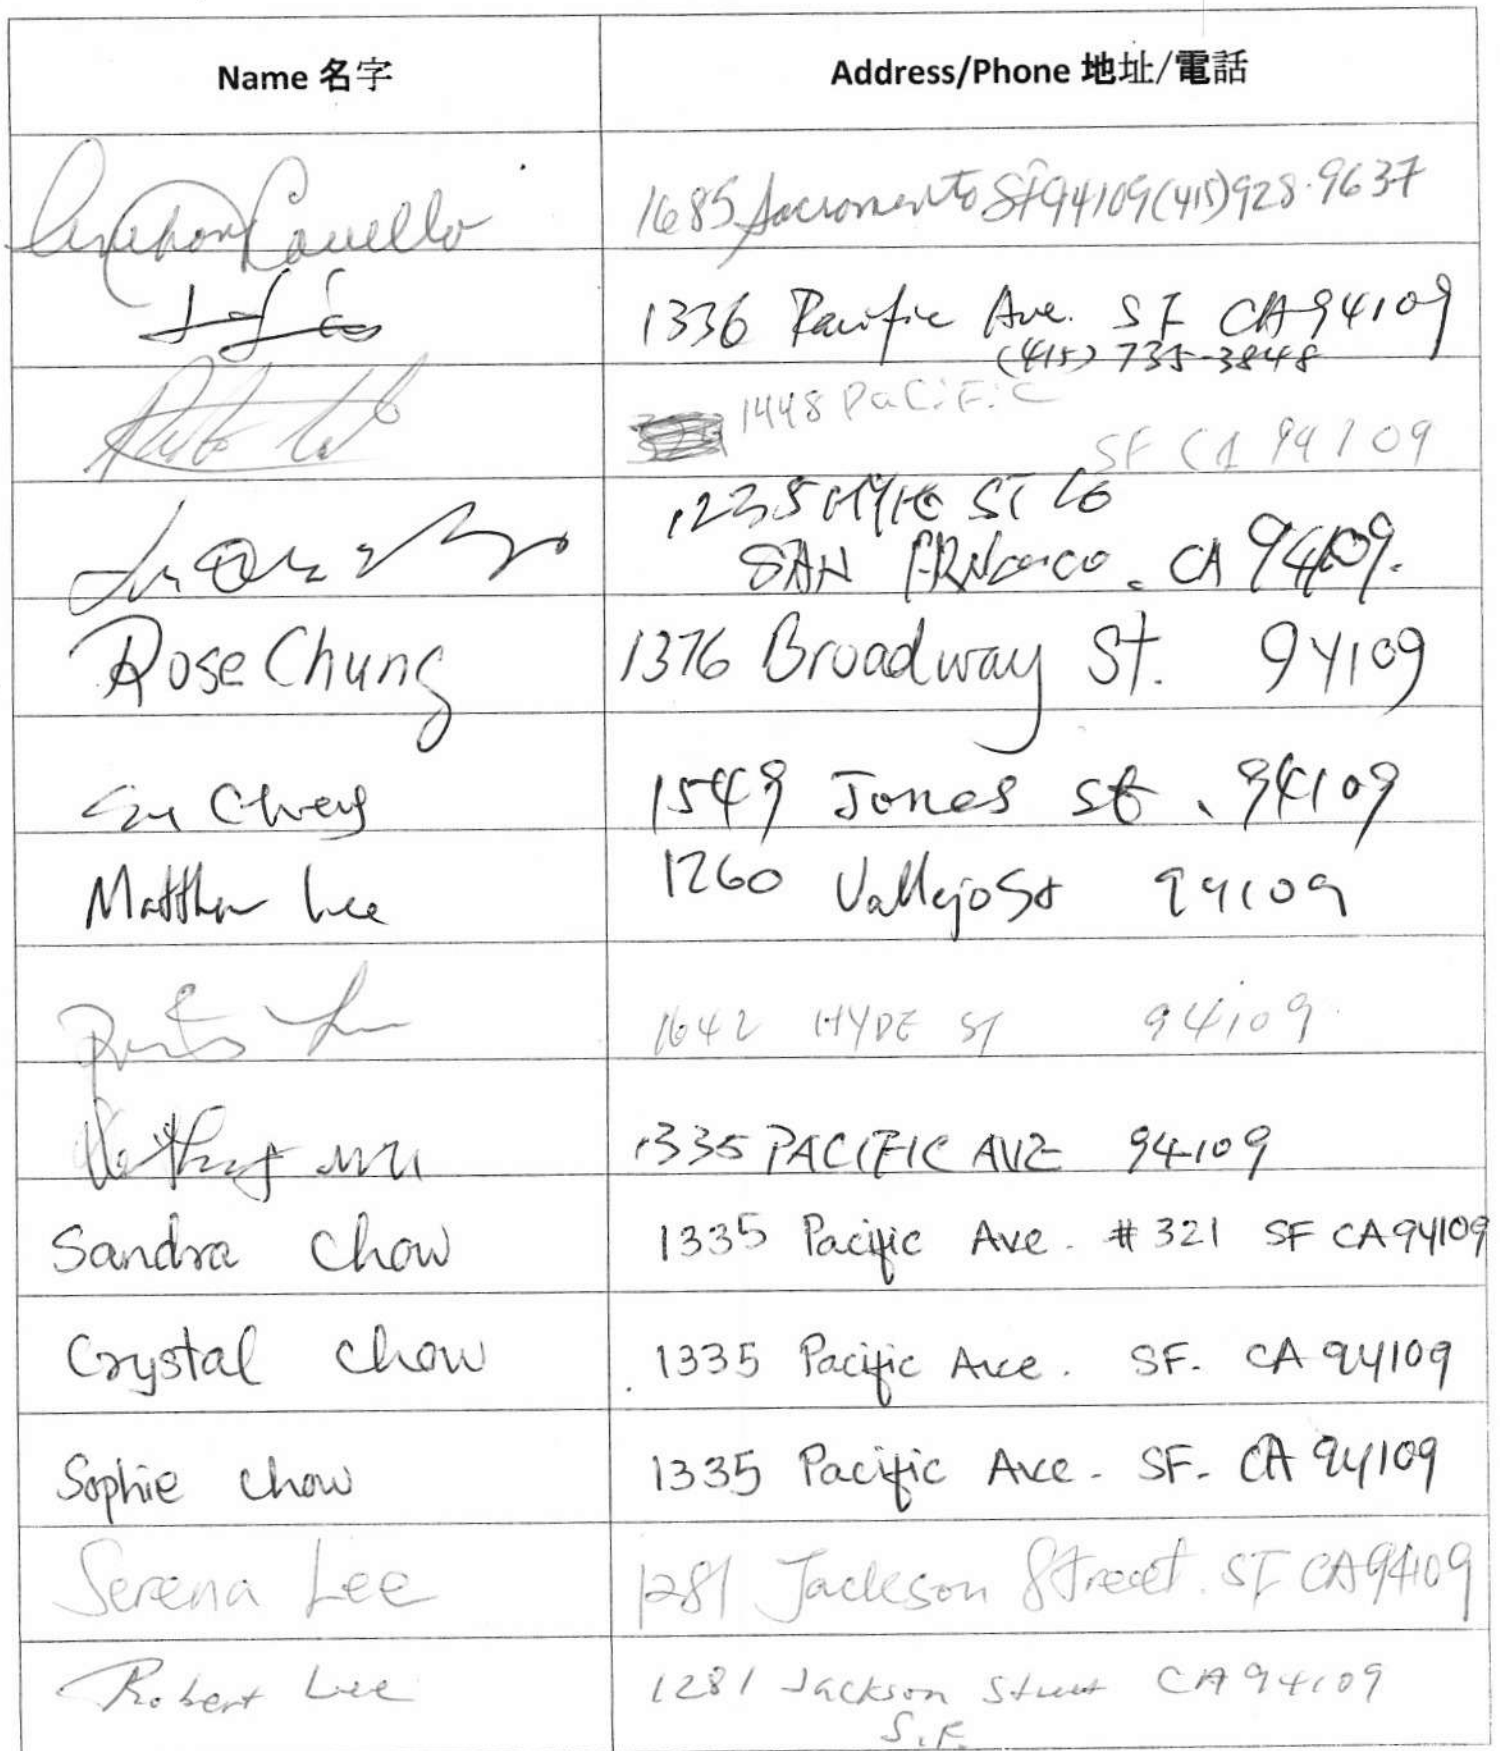 Name 名字
Address/Phone 地址/電話
1685 Sacramento St 94109 (415) 928-9637
1336 Pacific Ave. SF CA 94109
(415) 735-3848
1448 PaCiFiC
SF CA 94109
1235 ST
SAN CA 94109.
Rose Chung 1376 Broadway St. 94109
1549 Jones St. 94109
Matthew Lee 1260 Vallejo St 94109
1642 HYDE ST 94109
1335 PACIFIC AVE 94109
Sandra Chow 1335 Pacific Ave. #321 SF CA 94109
Crystal Chow 1335 Pacific Ave. SF. CA 94109
Sophie Chow 1335 Pacific Ave. SF. CA 94109
Serena Lee 1281 Jackson Street. SF CA 94109
Robert Lee 1281 Jackson Street CA 94109
S.F.